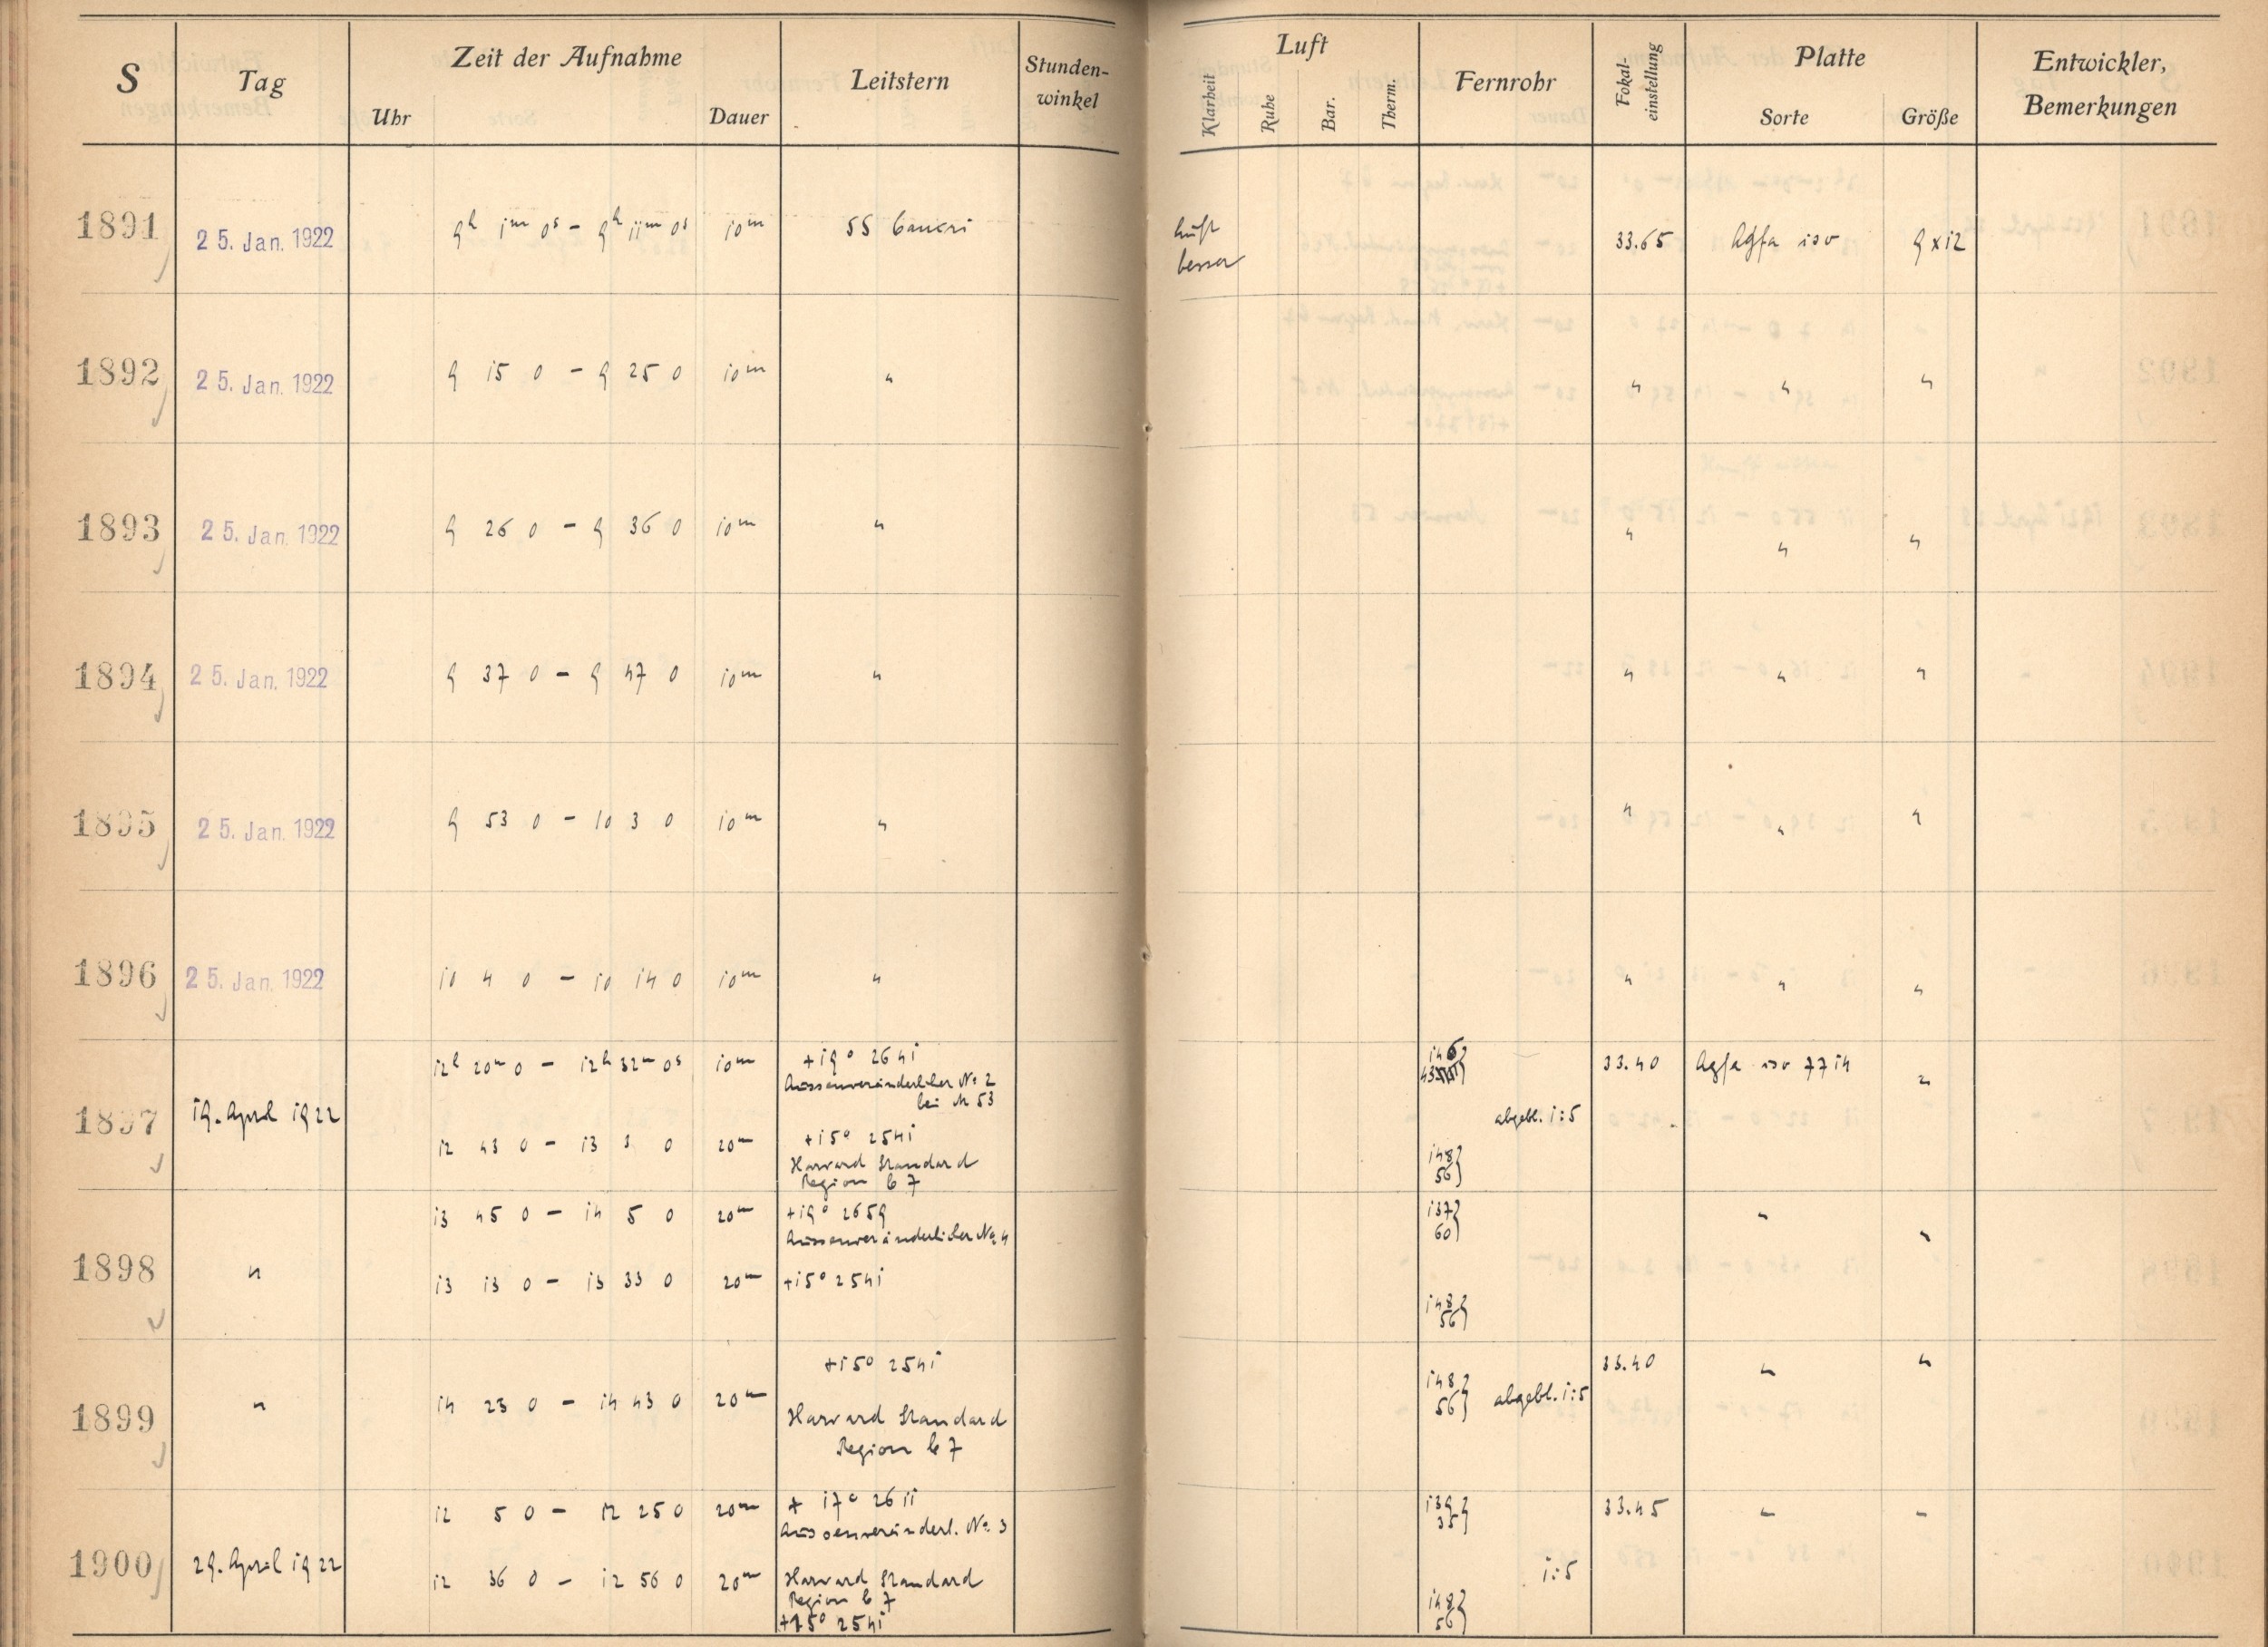 S Tag Zeit der Aufnahme Uhr Dauer Leitstern Stunden-winkel Luft Klarheit Ruhe Bar. Therm. Fernrohr Fokal-einstellung Platte Sorte Größe Entwickler, Bemerkungen
1891 25. Jan. 1922 9h 1m 0s - 9h 11m 0s 10m 55 Cancri Luft besser 33.65 Agfa iso 9x12
1892 25. Jan. 1922 9 15 0 - 9 25 0 10m " " " "
1893 25. Jan. 1922 9 26 0 - 9 36 0 10m " " " "
1894 25. Jan. 1922 9 37 0 - 9 47 0 10m " " " "
1895 25. Jan. 1922 9 53 0 - 10 3 0 10m " " " "
1896 25. Jan. 1922 10 4 0 - 10 14 0 10m " " " "
12h 20m 0 - 12h 32m 0s 10m +19° 2641 146 33.40 Agfa iso 7714 "
Aussenveränderlicher No 2
bei M 53
1897 19. April 1922 abgebl. 1:5
12 43 0 - 13 3 0 20m +15° 2541 148
Harvard Standard 56
Region C 7
13 45 0 - 14 5 0 20m +19° 2659 137 " "
Aussenveränderlicher No 4 60
1898 "
13 13 0 - 13 33 0 20m +15° 2541 148
56
+15° 2541 33.40 " "
1899 " 14 23 0 - 14 43 0 20m 148 56 abgebl. 1:5
Harvard Standard
Region C 7
12 5 0 - 12 25 0 20m + 17° 2611 139 33.45 " "
Aussenveränderl. No. 3 35
1900 29. April 1922 1:5
12 36 0 - 12 56 0 20m Harvard Standard
Region C 7 148
+15° 2541 56